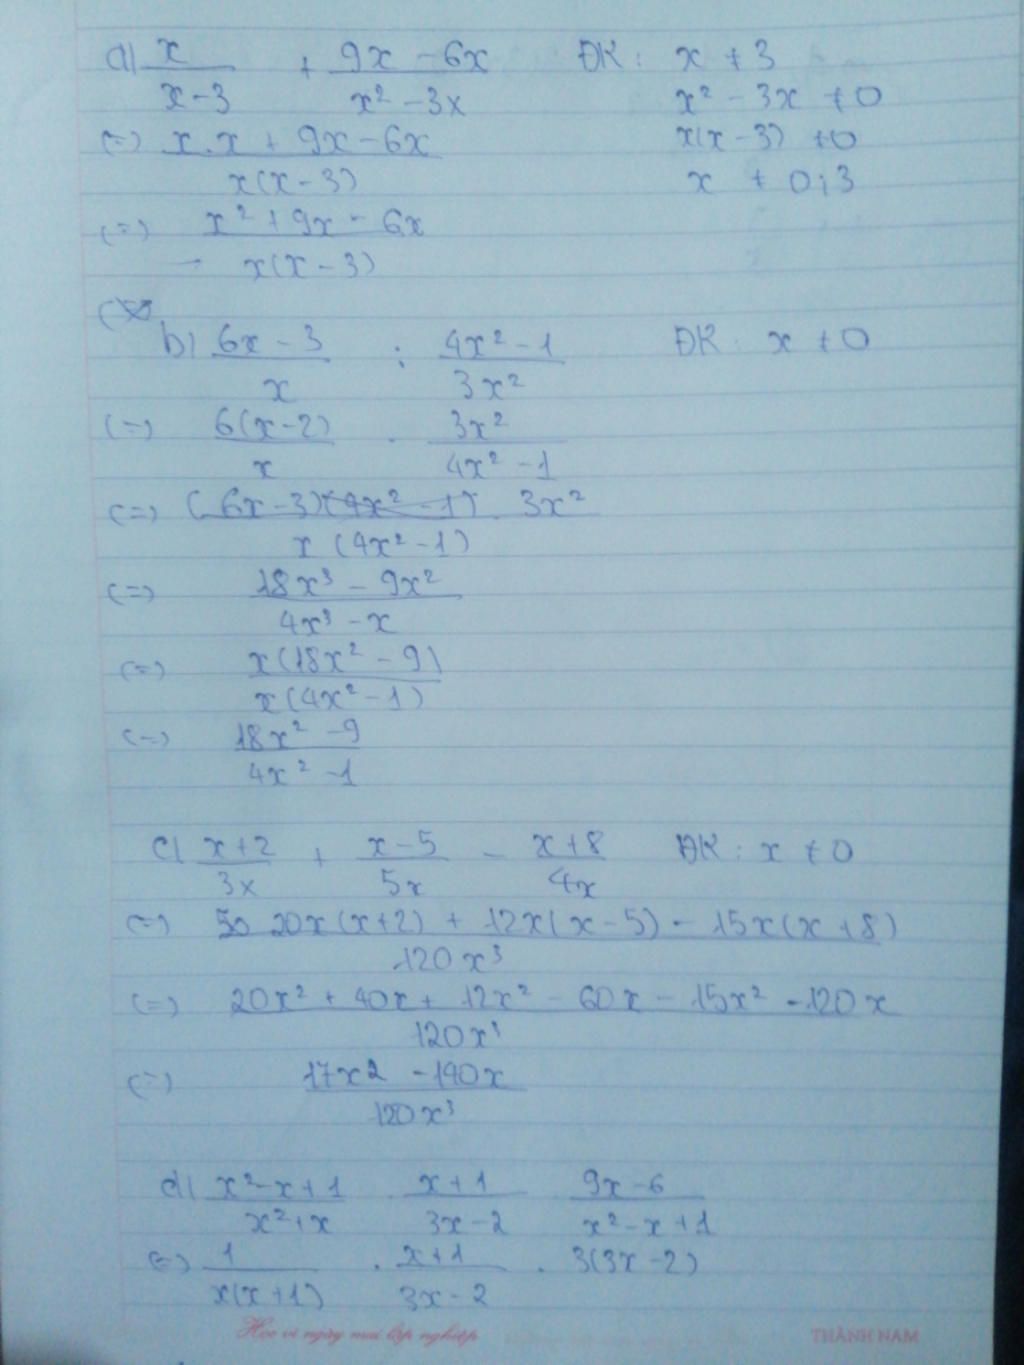 a) x/(x-3) + (9x - 6x)/(x² - 3x)   ĐK: x ≠ 3
x² - 3x ≠ 0
(=) (x.x + 9x - 6x)/(x(x-3))   x(x-3) ≠ 0
x ≠ 0;3
(=) (x² + 9x - 6x)/(x(x-3))
b) (6x-3)/x : (4x²-1)/(3x²)   ĐK: x ≠ 0
(=) 6(x-2)/x . 3x²/(4x²-1)
(=) (6x-3)(4x²-1) . 3x²/(x(4x²-1))
(=) (18x³ - 9x²)/(4x³ - x)
(=) x(18x² - 9)/(x(4x²-1))
(=) (18x² - 9)/(4x² - 1)
c) (x+2)/(3x) + (x-5)/(5x) - (x+8)/(4x)   ĐK: x ≠ 0
(=) (20x(x+2) + 12x(x-5) - 15x(x+8))/(120x³)
(=) (20x² + 40x + 12x² - 60x - 15x² - 120x)/(120x³)
(=) (17x² - 140x)/(120x³)
d) (x²-x+1)/(x²+x) . (x+1)/(3x-2) . (9x-6)/(x²-x+1)
(=) 1/(x(x+1)) . (x+1)/(3x-2) . 3(3x-2)
Học vì ngày mai lập nghiệp
THÀNH NAM